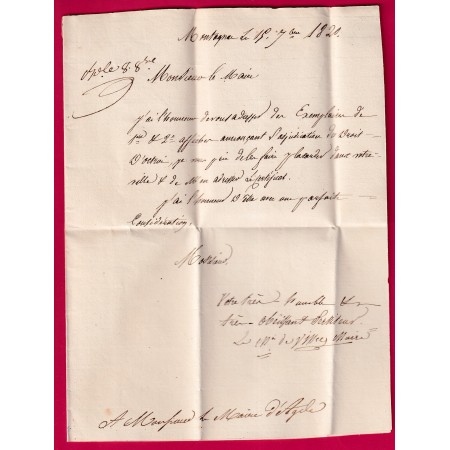 Montagnac le 15 7bre 1820.
Rple 8. 8bre
Monsieur le Maire
j'ai l'honneur de vous adresser des Exemplaires de
1re & 2e affiches annonçant l'adjudication du Droit
D'octroi, je vous prie de les faire placarder dans votre
ville & de M'en adresser Certificat.
j'ai l'honneur D'Etre avec une parfaite
Considération,
Monsieur,
Votre très humble &
très obéissant serviteur
Le Mis de Maire
A Monsieur le Maire d'Agde